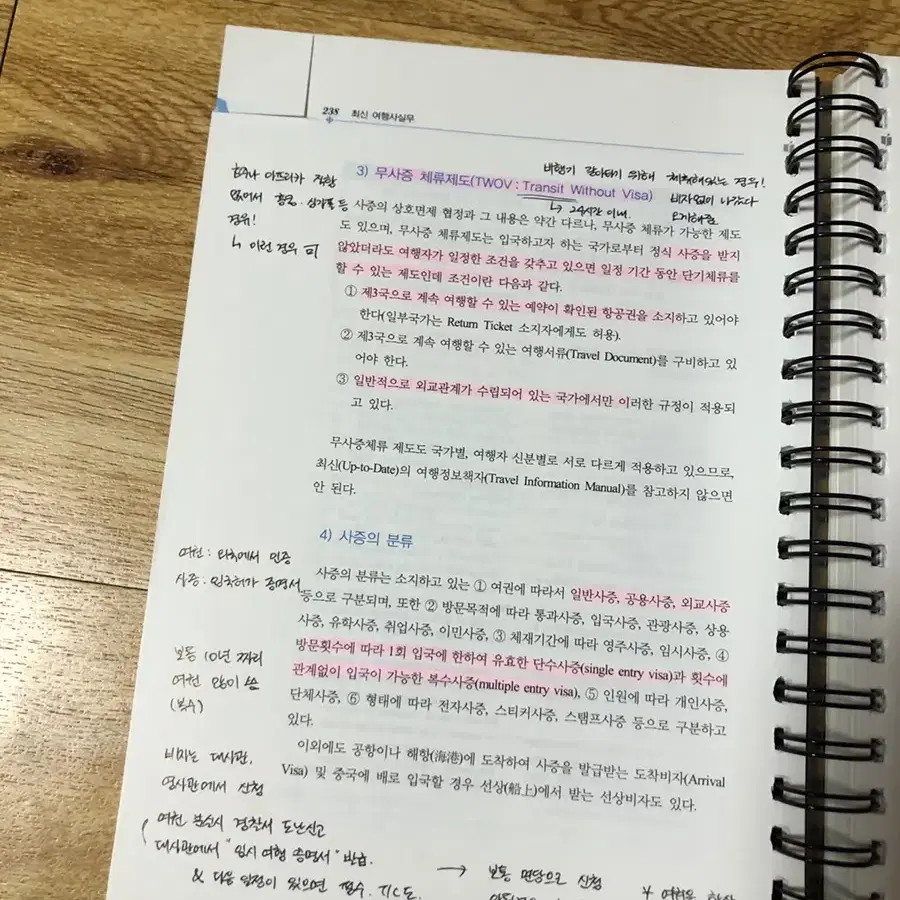 238 최신 여행사실무
비행기 갈아타기 위해 체류해있는 경우!
3) 무사증 체류제도(TWOV : Transit Without Visa)
비자없이 나갔다
오기해줌
↳ 24시간 이내.
아프리카 직항
없어서 홍콩, 싱가폴 등
경유!
↳ 이런 경우
사증의 상호면제 협정과 그 내용은 약간 다르나, 무사증 체류가 가능한 제도
도 있으며, 무사증 체류제도는 입국하고자 하는 국가로부터 정식 사증을 받지
않았더라도 여행자가 일정한 조건을 갖추고 있으면 일정 기간 동안 단기체류를
할 수 있는 제도인데 조건이란 다음과 같다.
① 제3국으로 계속 여행할 수 있는 예약이 확인된 항공권을 소지하고 있어야
한다(일부국가는 Return Ticket 소지자에게도 허용).
② 제3국으로 계속 여행할 수 있는 여행서류(Travel Document)를 구비하고 있
어야 한다.
③ 일반적으로 외교관계가 수립되어 있는 국가에서만 이러한 규정이 적용되
고 있다.
무사증체류 제도도 국가별, 여행자 신분별로 서로 다르게 적용하고 있으므로,
최신(Up-to-Date)의 여행정보책자(Travel Information Manual)를 참고하지 않으면
안 된다.
4) 사증의 분류
여권 : 외국에서 인증
사증 : 입국허가 증명서
사증의 분류는 소지하고 있는 ① 여권에 따라서 일반사증, 공용사증, 외교사증
등으로 구분되며, 또한 ② 방문목적에 따라 통과사증, 입국사증, 관광사증, 상용
사증, 유학사증, 취업사증, 이민사증, ③ 체재기간에 따라 영주사증, 임시사증, ④
방문횟수에 따라 1회 입국에 한하여 유효한 단수사증(single entry visa)과 횟수에
관계없이 입국이 가능한 복수사증(multiple entry visa), ⑤ 인원에 따라 개인사증,
단체사증, ⑥ 형태에 따라 전자사증, 스티커사증, 스탬프사증 등으로 구분하고
있다.
보통 10년 짜리
여권 많이 씀
(복수)
이외에도 공항이나 해항(海港)에 도착하여 사증을 발급받는 도착비자(Arrival
Visa) 및 중국에 배로 입국할 경우 선상(船上)에서 받는 선상비자도 있다.
비자는 대사관,
영사관에서 신청
여권 분실시 경찰서 도난신고
대사관에서 "임시 여행 증명서" 발급.
& 다음 일정이 있으면 접수. TC도.
→ 보통 면당으로 신청